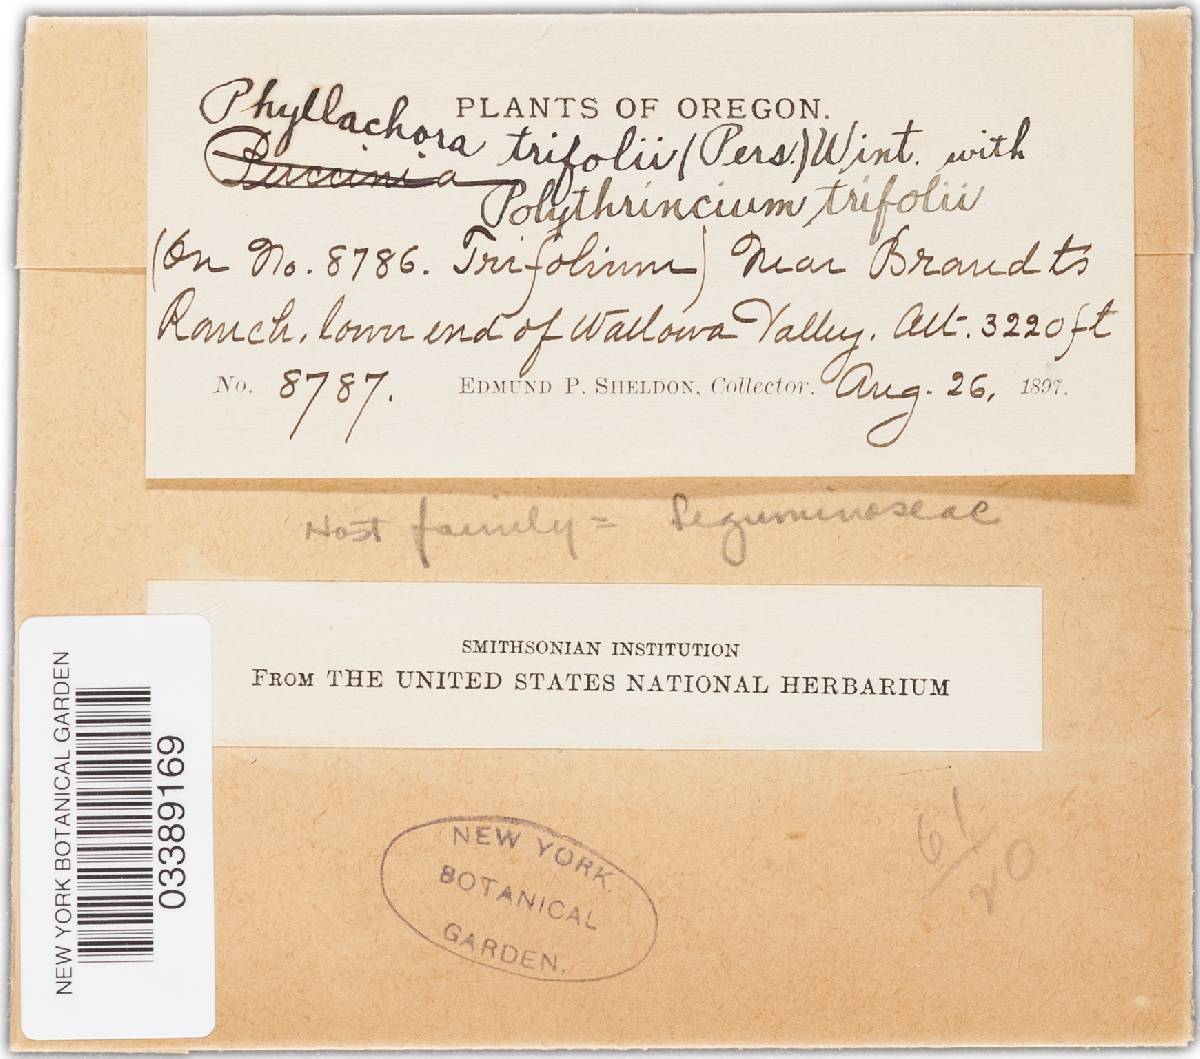 PLANTS OF OREGON.
Phyllachora trifolii (Pers.) Wint. with
Puccinia
Polythrincium trifolii
(On No. 8786. Trifolium) Near Brandts
Ranch, lower end of Wallowa Valley. Alt. 3220 ft
No. 8787. EDMUND P. SHELDON, Collector. Aug. 26, 1897.
Host family = Leguminoseae
SMITHSONIAN INSTITUTION
FROM THE UNITED STATES NATIONAL HERBARIUM
NEW YORK BOTANICAL GARDEN
03389169
NEW YORK
BOTANICAL
GARDEN.
61
20